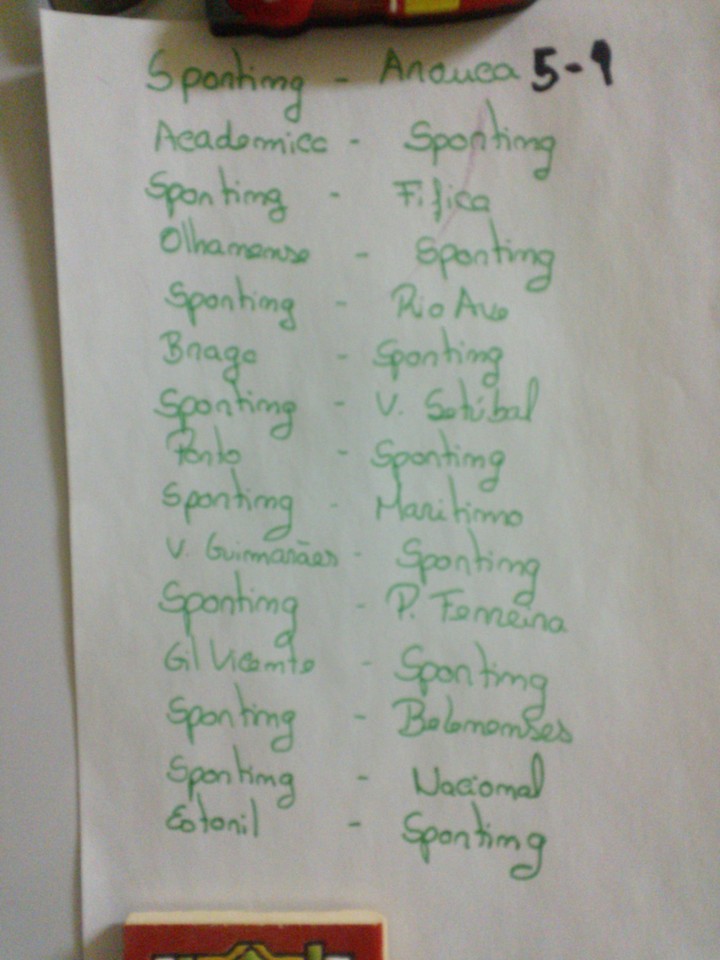 Sporting - Arouca 5-1
Academica - Sporting
Sporting - Fifica
Olhanense - Sporting
Sporting - Rio Ave
Braga - Sporting
Sporting - V. Setúbal
Porto - Sporting
Sporting - Maritimo
V. Guimarães - Sporting
Sporting - P. Ferreira
Gil Vicente - Sporting
Sporting - Belenenses
Sporting - Nacional
Estoril - Sporting